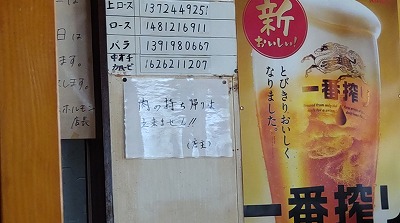 上ロース 1372449251
ロース 1481216911
バラ 1391980667
中オチカルビ 1626211207
肉の持ち帰りは
出来ません!!
(店主)
新
おいしい!
とびきりおいしく
なりました。
一番搾り
一番搾り
日は
ます。
します。
ホルモン
店長